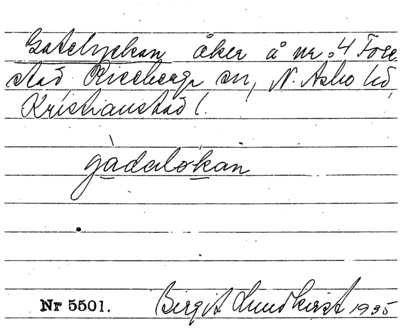 Gatelyckan åker å nr 4 Fore-
stad Riseberga sn, N. Åsbo hd,
Kristianstad l.
gadalökan
Nr 5501. Birgit Lundkvist 1935